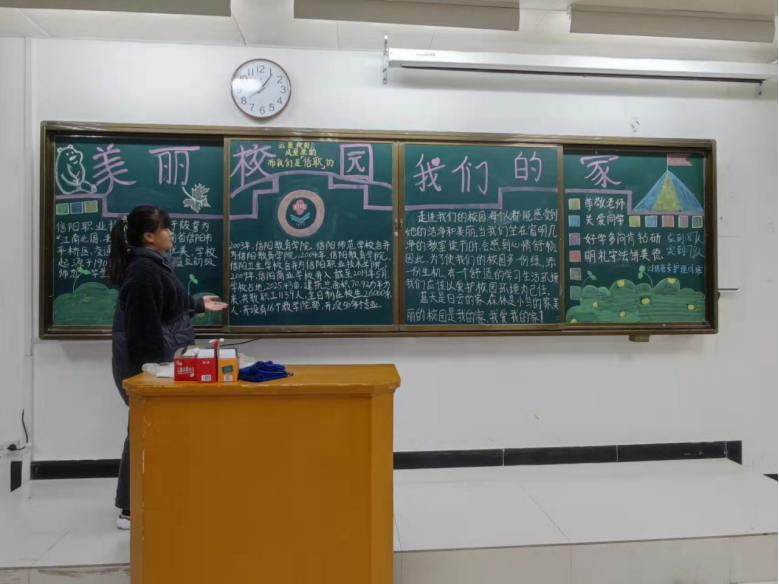 美丽校园 我们的家
而我们是信职的
信阳职业技
于被誉为
江南北国
省信阳市
平桥区
美、学校
起源于190
立的汝
师范学堂
2003年,信阳教育学院、信阳师范学校合并
为信阳教育学院。2004年,信阳教育学院、
信阳卫生学校合并为信阳职业技术学院。
2007年,信阳商业学校并入,截至2019年5月,
学校占地2025.43亩,建筑总面积70.92万平方
米,共教职工1137人,全日制在校生26000余
人,开设有16个教学院部,
走进我们的校园,每个人都能感受到
她的洁净和美丽,当我们坐在窗明几
净的教室读书时,会感到心情舒畅
因此,为了使我们的校园多一份绿,添
一份生机,有一个舒适的学习生活环境
我们应该以爱护校园环境为己任。
蓝天是白云的家,森林是小鸟的家,美
丽的校园是我的家,我爱我的家!
尊敬老师
关爱同学
好学多问肯钻研
明礼守法讲美德